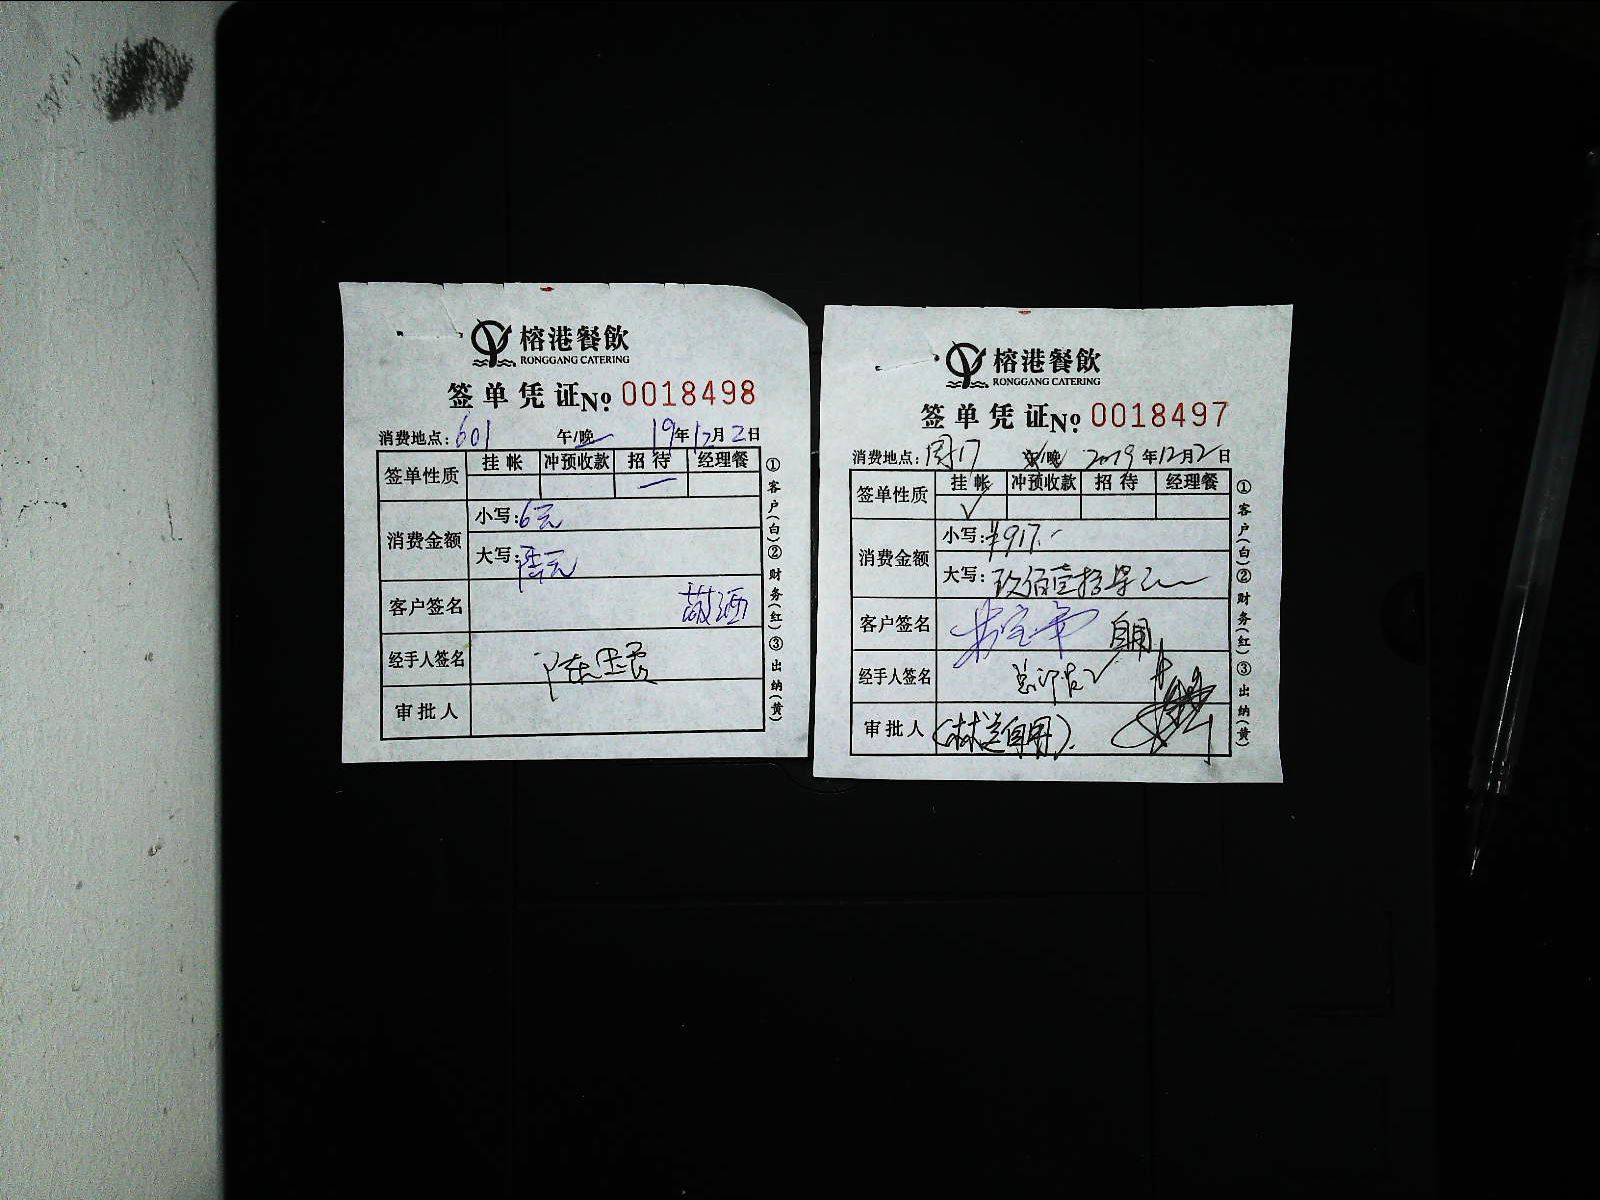 榕港餐飲
RONGGANG CATERING
签单凭证No 0018498
消费地点:601 午/晚 19年12月2日
签单性质 挂帐 冲预收款 招待 经理餐
消费金额 小写:6元
大写:陆元
客户签名 敬酒
经手人签名 陈
审批人
①客户(白)②财务(红)③出纳(黄)
榕港餐飲
RONGGANG CATERING
签单凭证No 0018497
消费地点: 午/晚 2019年12月2日
签单性质 挂帐 冲预收款 招待 经理餐
✓
消费金额 小写:¥917.-
大写:玖佰壹拾柒元
客户签名 自用
经手人签名
审批人 (林总自用).
①客户(白)②财务(红)③出纳(黄)